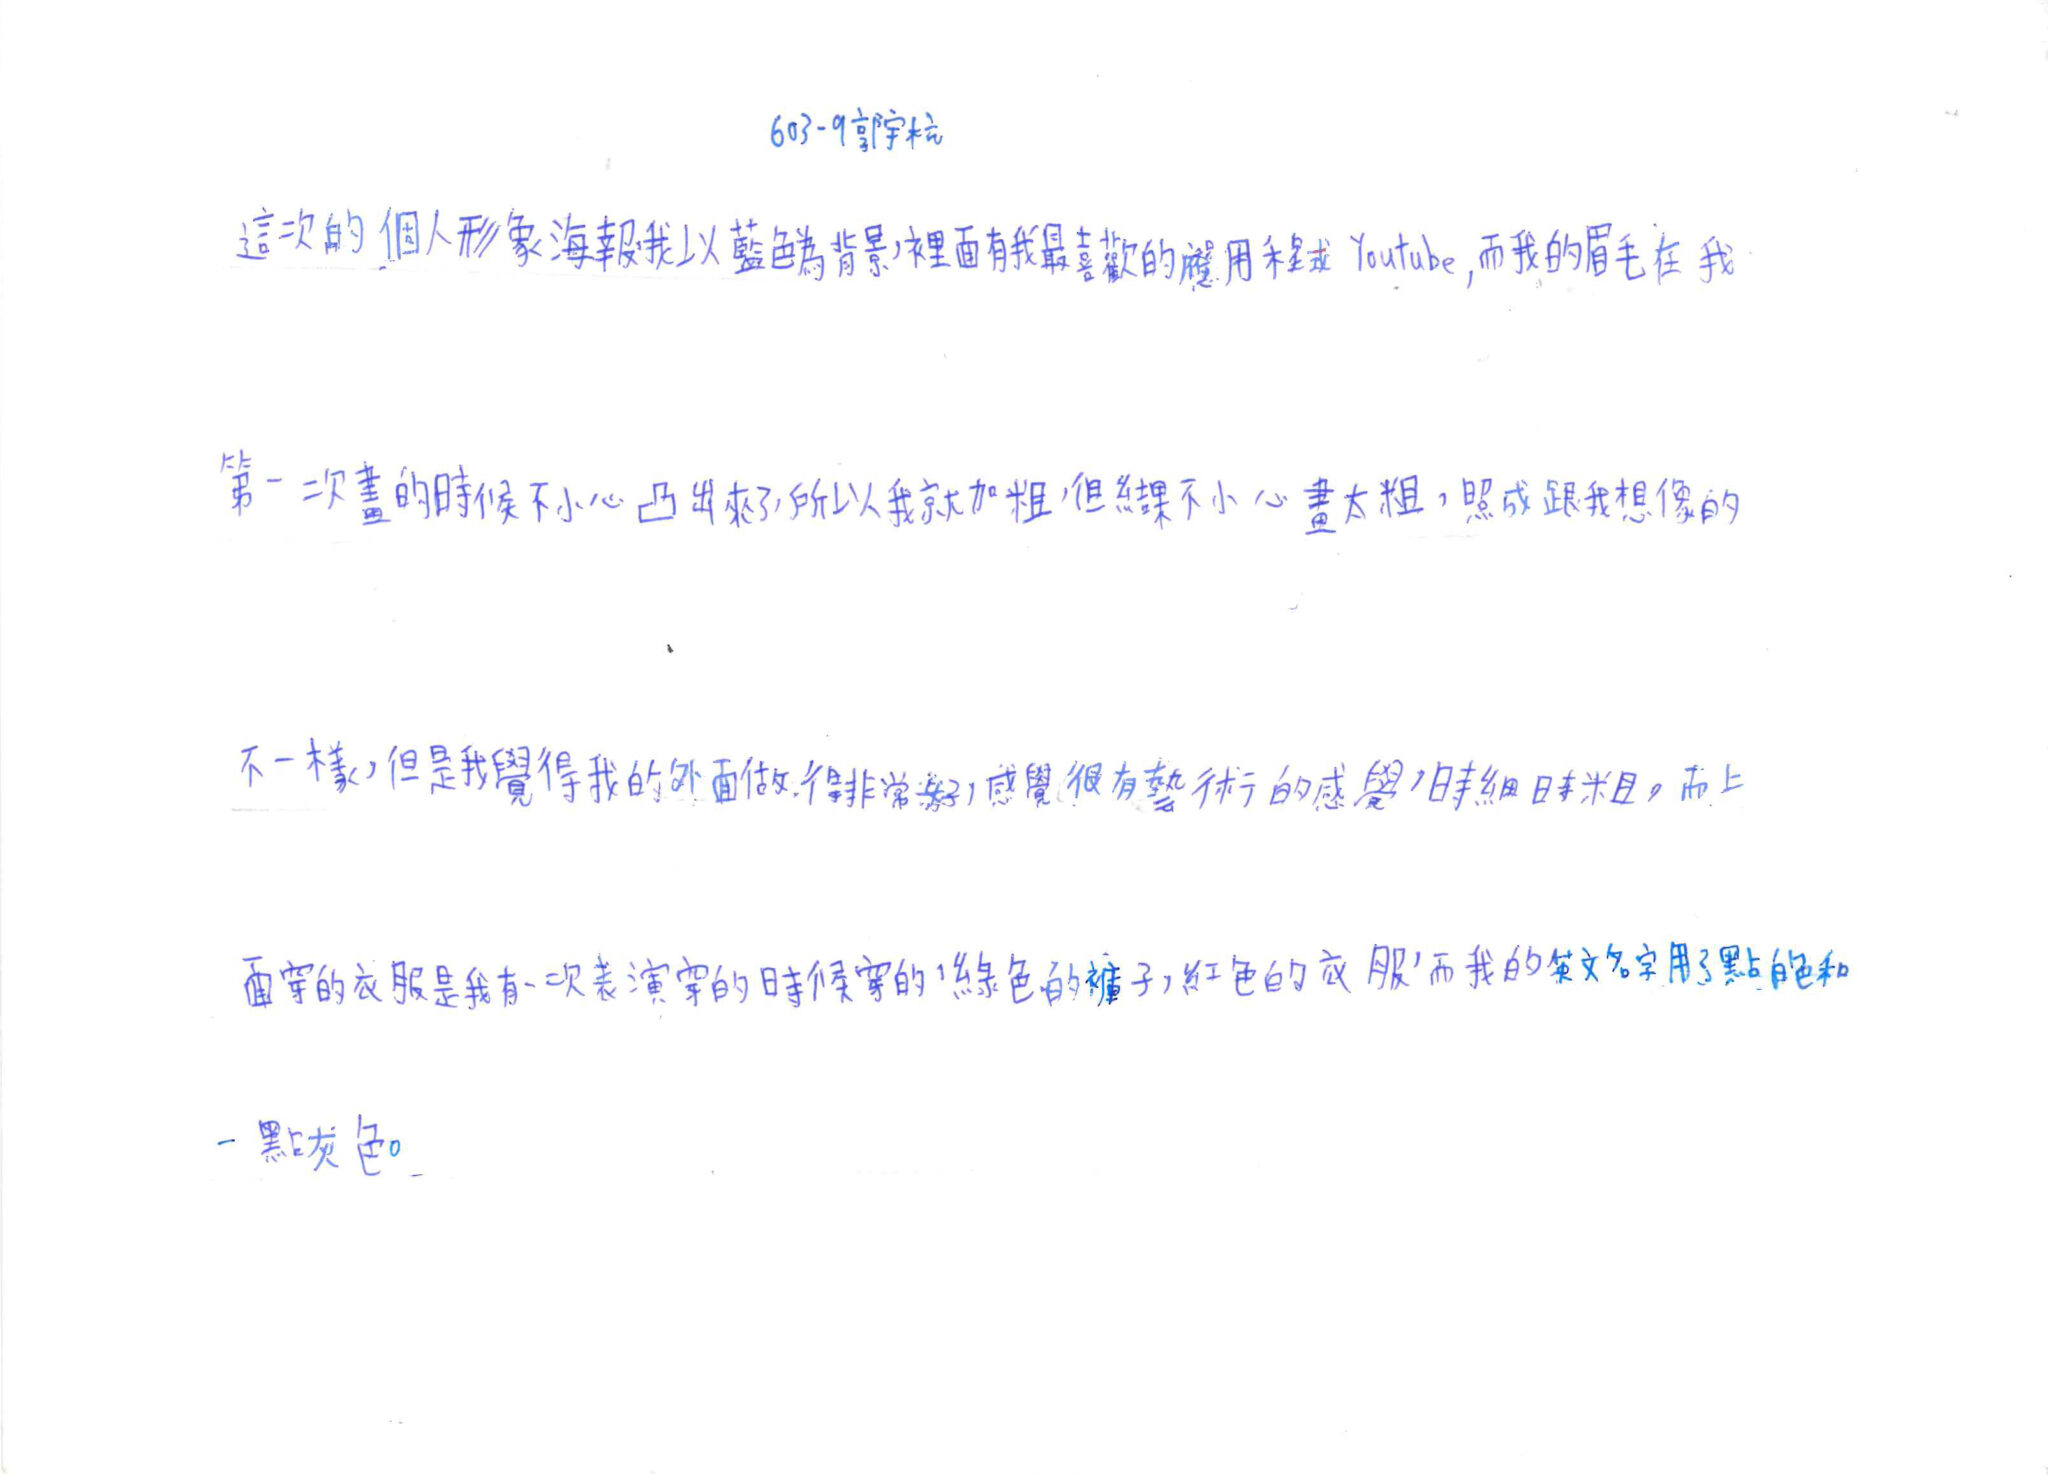 603-9郭宇杭
這次的個人形象海報我以藍色為背景,裡面有我最喜歡的應用程式Youtube,而我的眉毛在我
第一次畫的時候不小心凸出來了,所以我就加粗,但結果不小心畫太粗,照成跟我想像的
不一樣,但是我覺得我的外面做得非常好,感覺很有藝術的感覺,時細時粗。而上
面穿的衣服是我有一次表演穿的時候穿的,綠色的褲子,紅色的衣服,而我的英文名字用了點白色和
一點灰色。